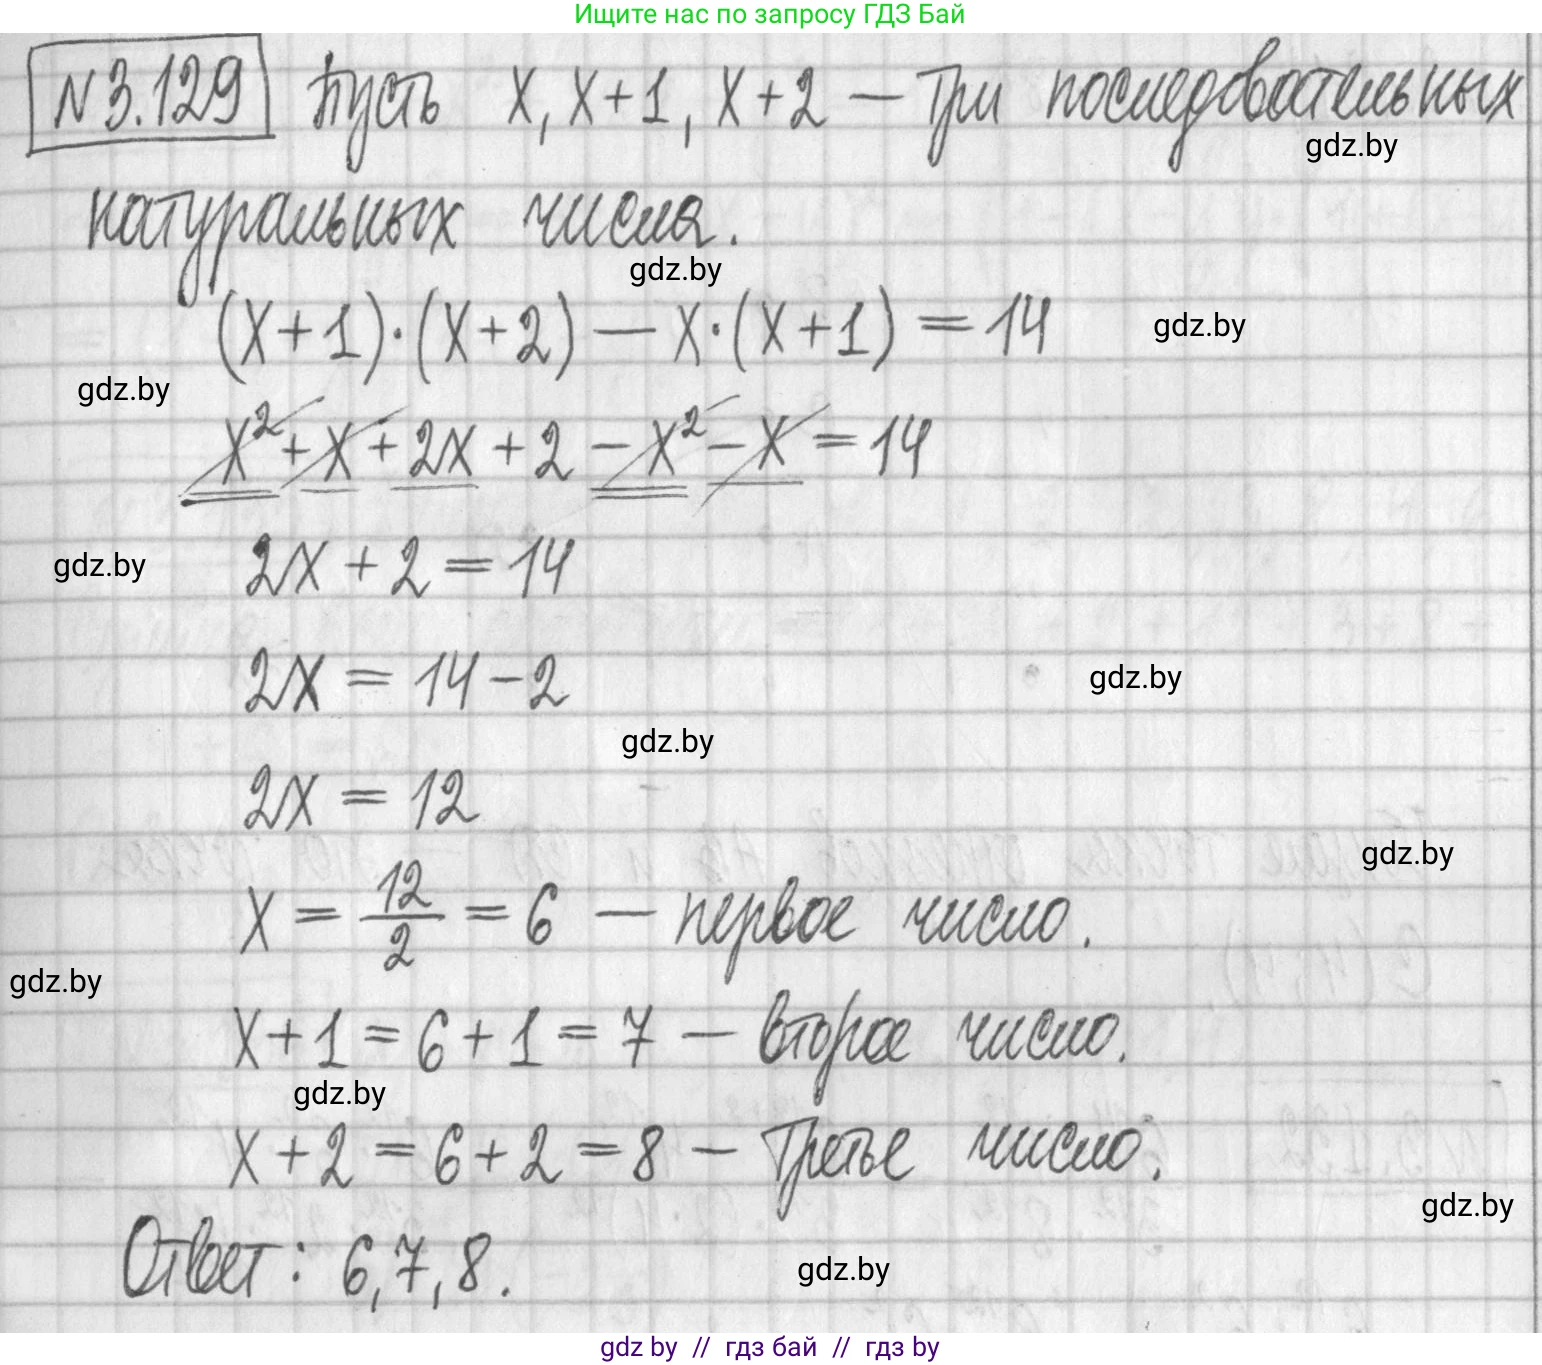 Ищите нас по запросу ГДЗ Бай
N3.129 Пусть x, x+1, x+2 — три последовательных
gdz.by
натуральных числа.
gdz.by
(x+1)·(x+2) — x·(x+1) = 14
gdz.by
gdz.by
x² + x + 2x + 2 − x² − x = 14
2x + 2 = 14
gdz.by
2x = 14 − 2
gdz.by
gdz.by
2x = 12
gdz.by
x = 12/2 = 6 — первое число.
gdz.by
x+1 = 6+1 = 7 — второе число.
gdz.by
x+2 = 6+2 = 8 — третье число.
gdz.by
Ответ: 6, 7, 8.
gdz.by
gdz by // гдз бай // гдз by